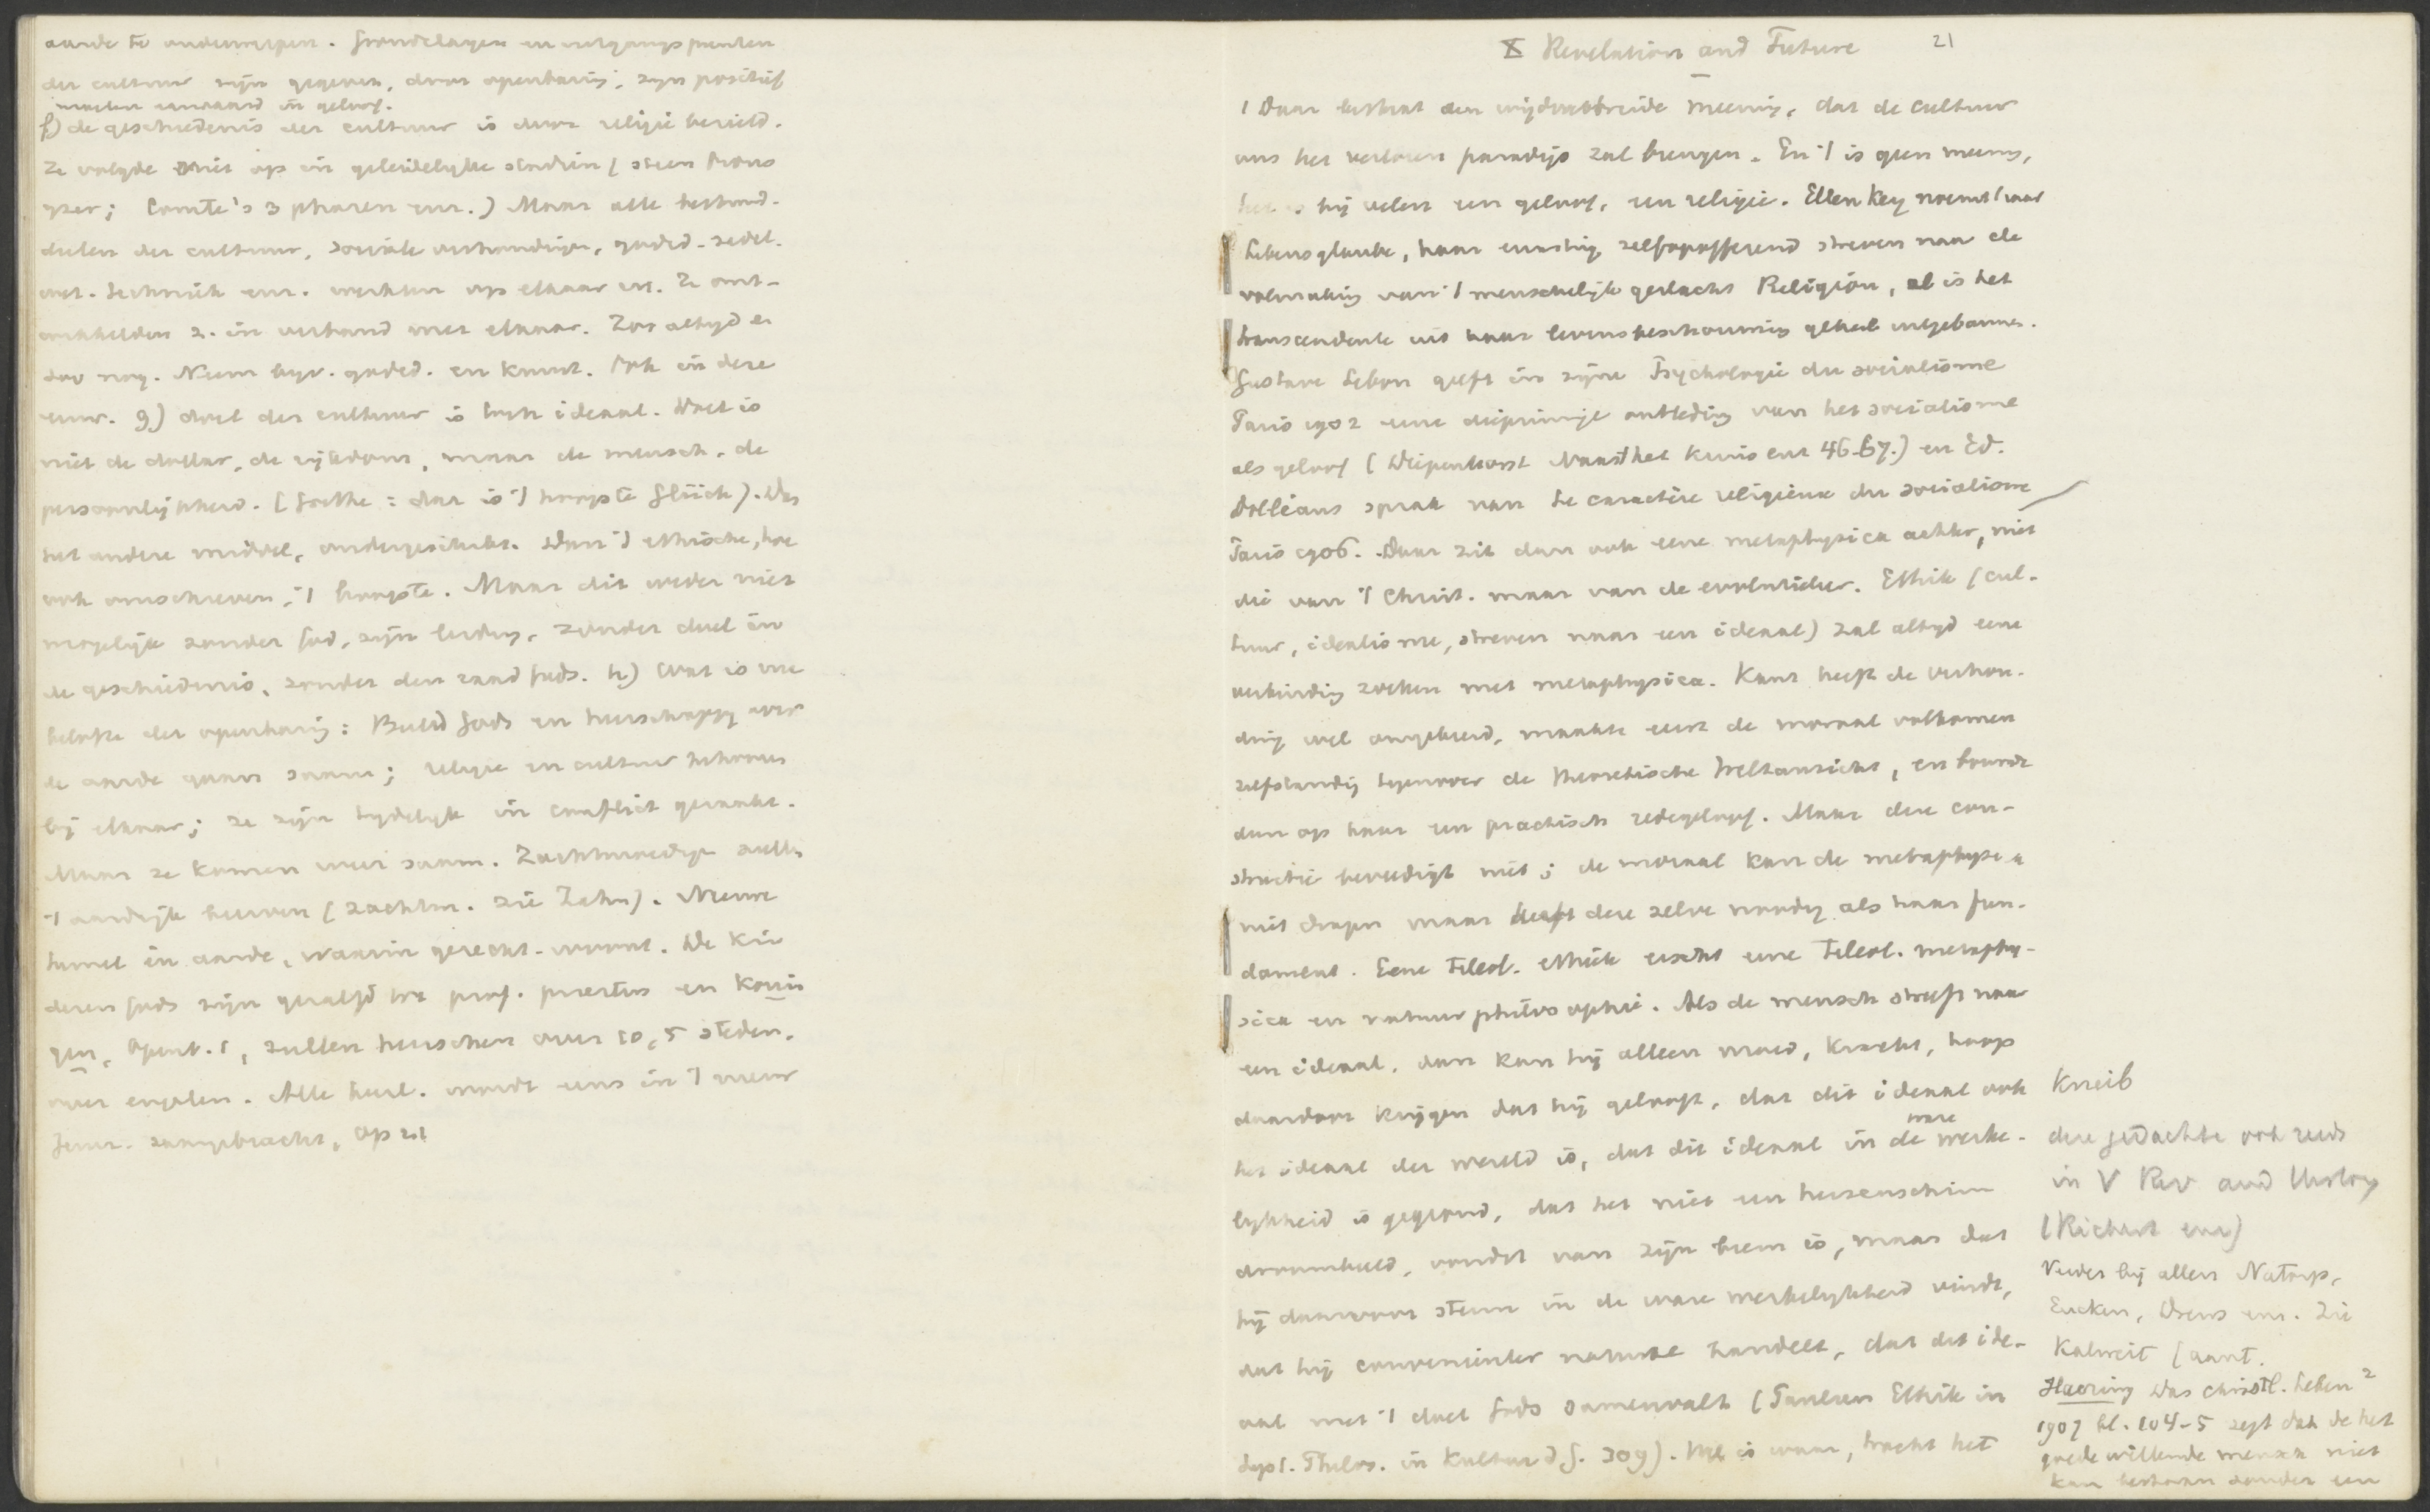 aarde te onderwerpen. Grondslagen en uitgangspunten
der cultuur zijn gegeven, door openbaring, zijn positief
moeten aanvaard in geloof.
f) de geschiedenis der cultuur is door religie bezield.
Ze volgde niet op in geleidelijke stadiën (steen brons
yzer; Comte's 3 phasen enz.) Maar alle bestand-
delen der cultuur, sociale verhoudingen, godsd. zedel.
wet. techniek enz. werkten op elkaar in. Ze ont-
wikkelden z. in verband met elkaar. Zoo altyd en
zoo nog. Neem byv. godsd. en kunst. Ook in deze
eeuw. g) doel der cultuur is toch ideaal. Doel is
niet de dollar, de rijkdom, maar de mensch, de
persoonlijkheid. (Goethe: dat is 't hoogste Glück). Das
het andere middel, ondergeschikt. Dan 't ethische, hoe
ook omschreven, 't hoogste. Maar dit weder niet
mogelijk zonder God, zijn leiding, zonder doel in
de geschiedenis, zonder den raad Gods. h) Wat is nu
belofte der openbaring: Beeld Gods en heerschappij over
de aarde gaan saam; religie en cultuur behooren
bij elkaar; ze zijn tydelyk in conflict geraakt.
Maar ze komen weer saam. Zachtmoedige zullen
't aardrijk beërven (zachtm. zie Zahn). Nieuwe
hemel en aarde, waarin gerecht. woont. De kin-
deren Gods zijn gezalfd tot prof. priesters en konin
gen, Openb. 1, zullen heerschen over 10, 5 steden,
over engelen. Alle heerl. wordt eens in 't nieuw
Jeruz. saamgebracht, Op 21
X Revelation and Future 21
1 Daar bestaat een wijdverbreide meening, dat de cultuur
ons het verloren paradijs zal brengen. En 't is geen meening,
het is bij velen een geloof, een religie. Ellen Key noemt haar
Lebensglaube, haar ernstig zelfopofferend streven naar de
volmaking van 't menschelijk geslacht Religion, al is het
transcendente uit haar levensbeschouwing geheel uitgebannen.
Gustave Lebon geeft in zijne Psychologie du socialisme
Paris 1902 eene diepzinnige ontleding van het socialisme
als geloof (Diepenhorst Naast het Kruis enz 46-67.) en Ed.
Dolléans sprak van Le caractère religieux du socialisme
Paris 1906. Daar zit dan ook eene metaphysica achter, niet
die van 't Christ. maar van de evolutieleer. Ethiek (cul-
tuur, idealisme, streven naar een ideaal) zal altyd eene
verbinding zoeken met metaphysica. Kant heeft de verhou-
ding wel omgekeerd, maakte eerst de moraal volkomen
zelfstandig tegenover de theoretische Weltansicht, en bouwde
dan op haar een practisch redegeloof. Maar deze con-
structie bevredigt niet; de moraal kan de metaphysica
niet dragen maar heeft deze zelve noodig als haar fun-
dament. Eene Teleol. ethiek eischt eene Teleol. metaphy-
sica en natuurphilosophie. Als de mensch streeft naar
een ideaal, dan kan hij alleen moed, kracht, hoop
daardoor krijgen dat hij gelooft, dat dit ideaal ook
het ideaal der wereld is, dat dit ideaal in de ware werke-
lykheid is gegrond, dat het niet een hersenschim
droombeeld, vondst van zijn brein is, maar dat
hij daarvoor steun in de ware werkelykheid vindt,
dat hij convenienter naturae handelt, dat dit ide-
aal met 't doel Gods samenvalt (Paulsen Ethik in
Syst. Philos. in Kultur d G. 309). Wel is waar, tracht het
Kneib
deze gedachte ook reeds
in V Rev and History
(Rickert enz)
Verder bij allen Natorp,
Eucken, Drews enz. Zie
Kalweit (aant.
Haering Das christl. Leben 2
1907 bl. 104-5 zegt dat de het
goede willende mensch niet
kan bestaan zonder een